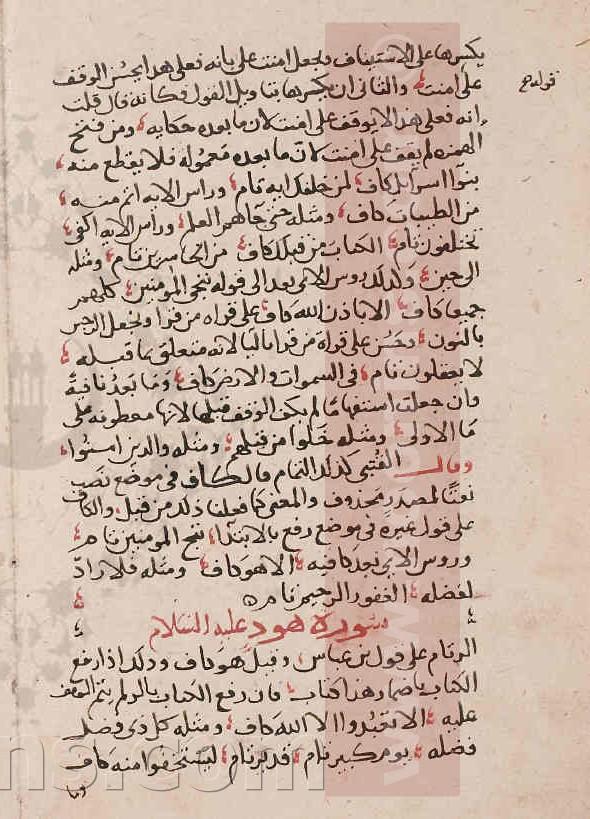 يكسرها على الاستيناف ويجعل امنت على بابه فعلى هذا يحسن الوقف
على امنت والثاني ان يكسرها بتاويل القول وكانه قال قلت
قوله ج
انه فعلى هذا لا يوقف على امنت لان ما بعده حكايه ومن فتح
الهمزه لم يقف على امنت لان ما بعده معموله فلا يقطع منه
بنوا اسرايل كاف لمن خلفك ايه تام وراس الايه اتم منه
من الطيبات كاف ومثله حتى جاهم العلم وراس الايه اكفى
يختلفون تام الكتاب من قبلك كاف من الخاسرين تام ومثله
الى حين وكذلك روس الاي بعد الى قوله ننجي المومنين كلهم
جميعا كاف الا باذن الله كاف على قراه من قرا ونجعل الرجس
بالنون وحسن على قراة من قرا باليا لانه متعلق بما قبله
لا يعقلون تام في السموات والارض كاف وما بعد نافية
وان جعلت استفهاما لم يكن الوقف قبلها لانها معطوفه على
ما الاولى ومثله خلوا من قبلهم ومثله والذين امنوا
وقال القتبي كذلك التمام فالكاف في موضع نصب
نعتا لمصدر محذوف والمعنى كما فعلنا ذلك من قبل والكاف
على قول غيره في موضع رفع بالابتدا ننج المومنين تام
وروس الاي بعد كافيه الا هو كاف ومثله فلا رادّ
لفضله الغفور الرحيم تام
سورة هود عليه السلام
الر تام على قول بن عباس وقيل هو كاف وذلك اذا رفع
الكتاب باضمار هذا كتاب فان رفع الكتاب بالر لم يتم الوقف
عليه الا تعبدوا الا الله كاف ومثله كل ذي فضل
فضله يوم كبير تام قدير تام ليستخفوا منه كاف